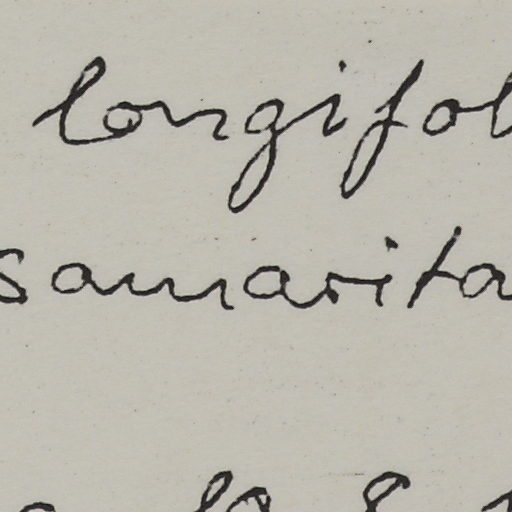 longifol
samarita